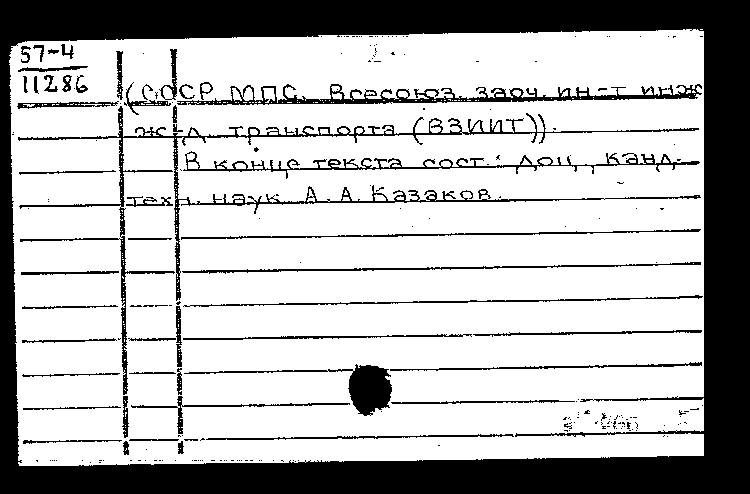 57-4
11286
2.
(СССР. МПС. Всесоюз. заоч. ин-т инж
ж-д. транспорта (ВЗИИТ)).
В конце текста сост.: доц., канд.
техн. наук А. А. Казаков.